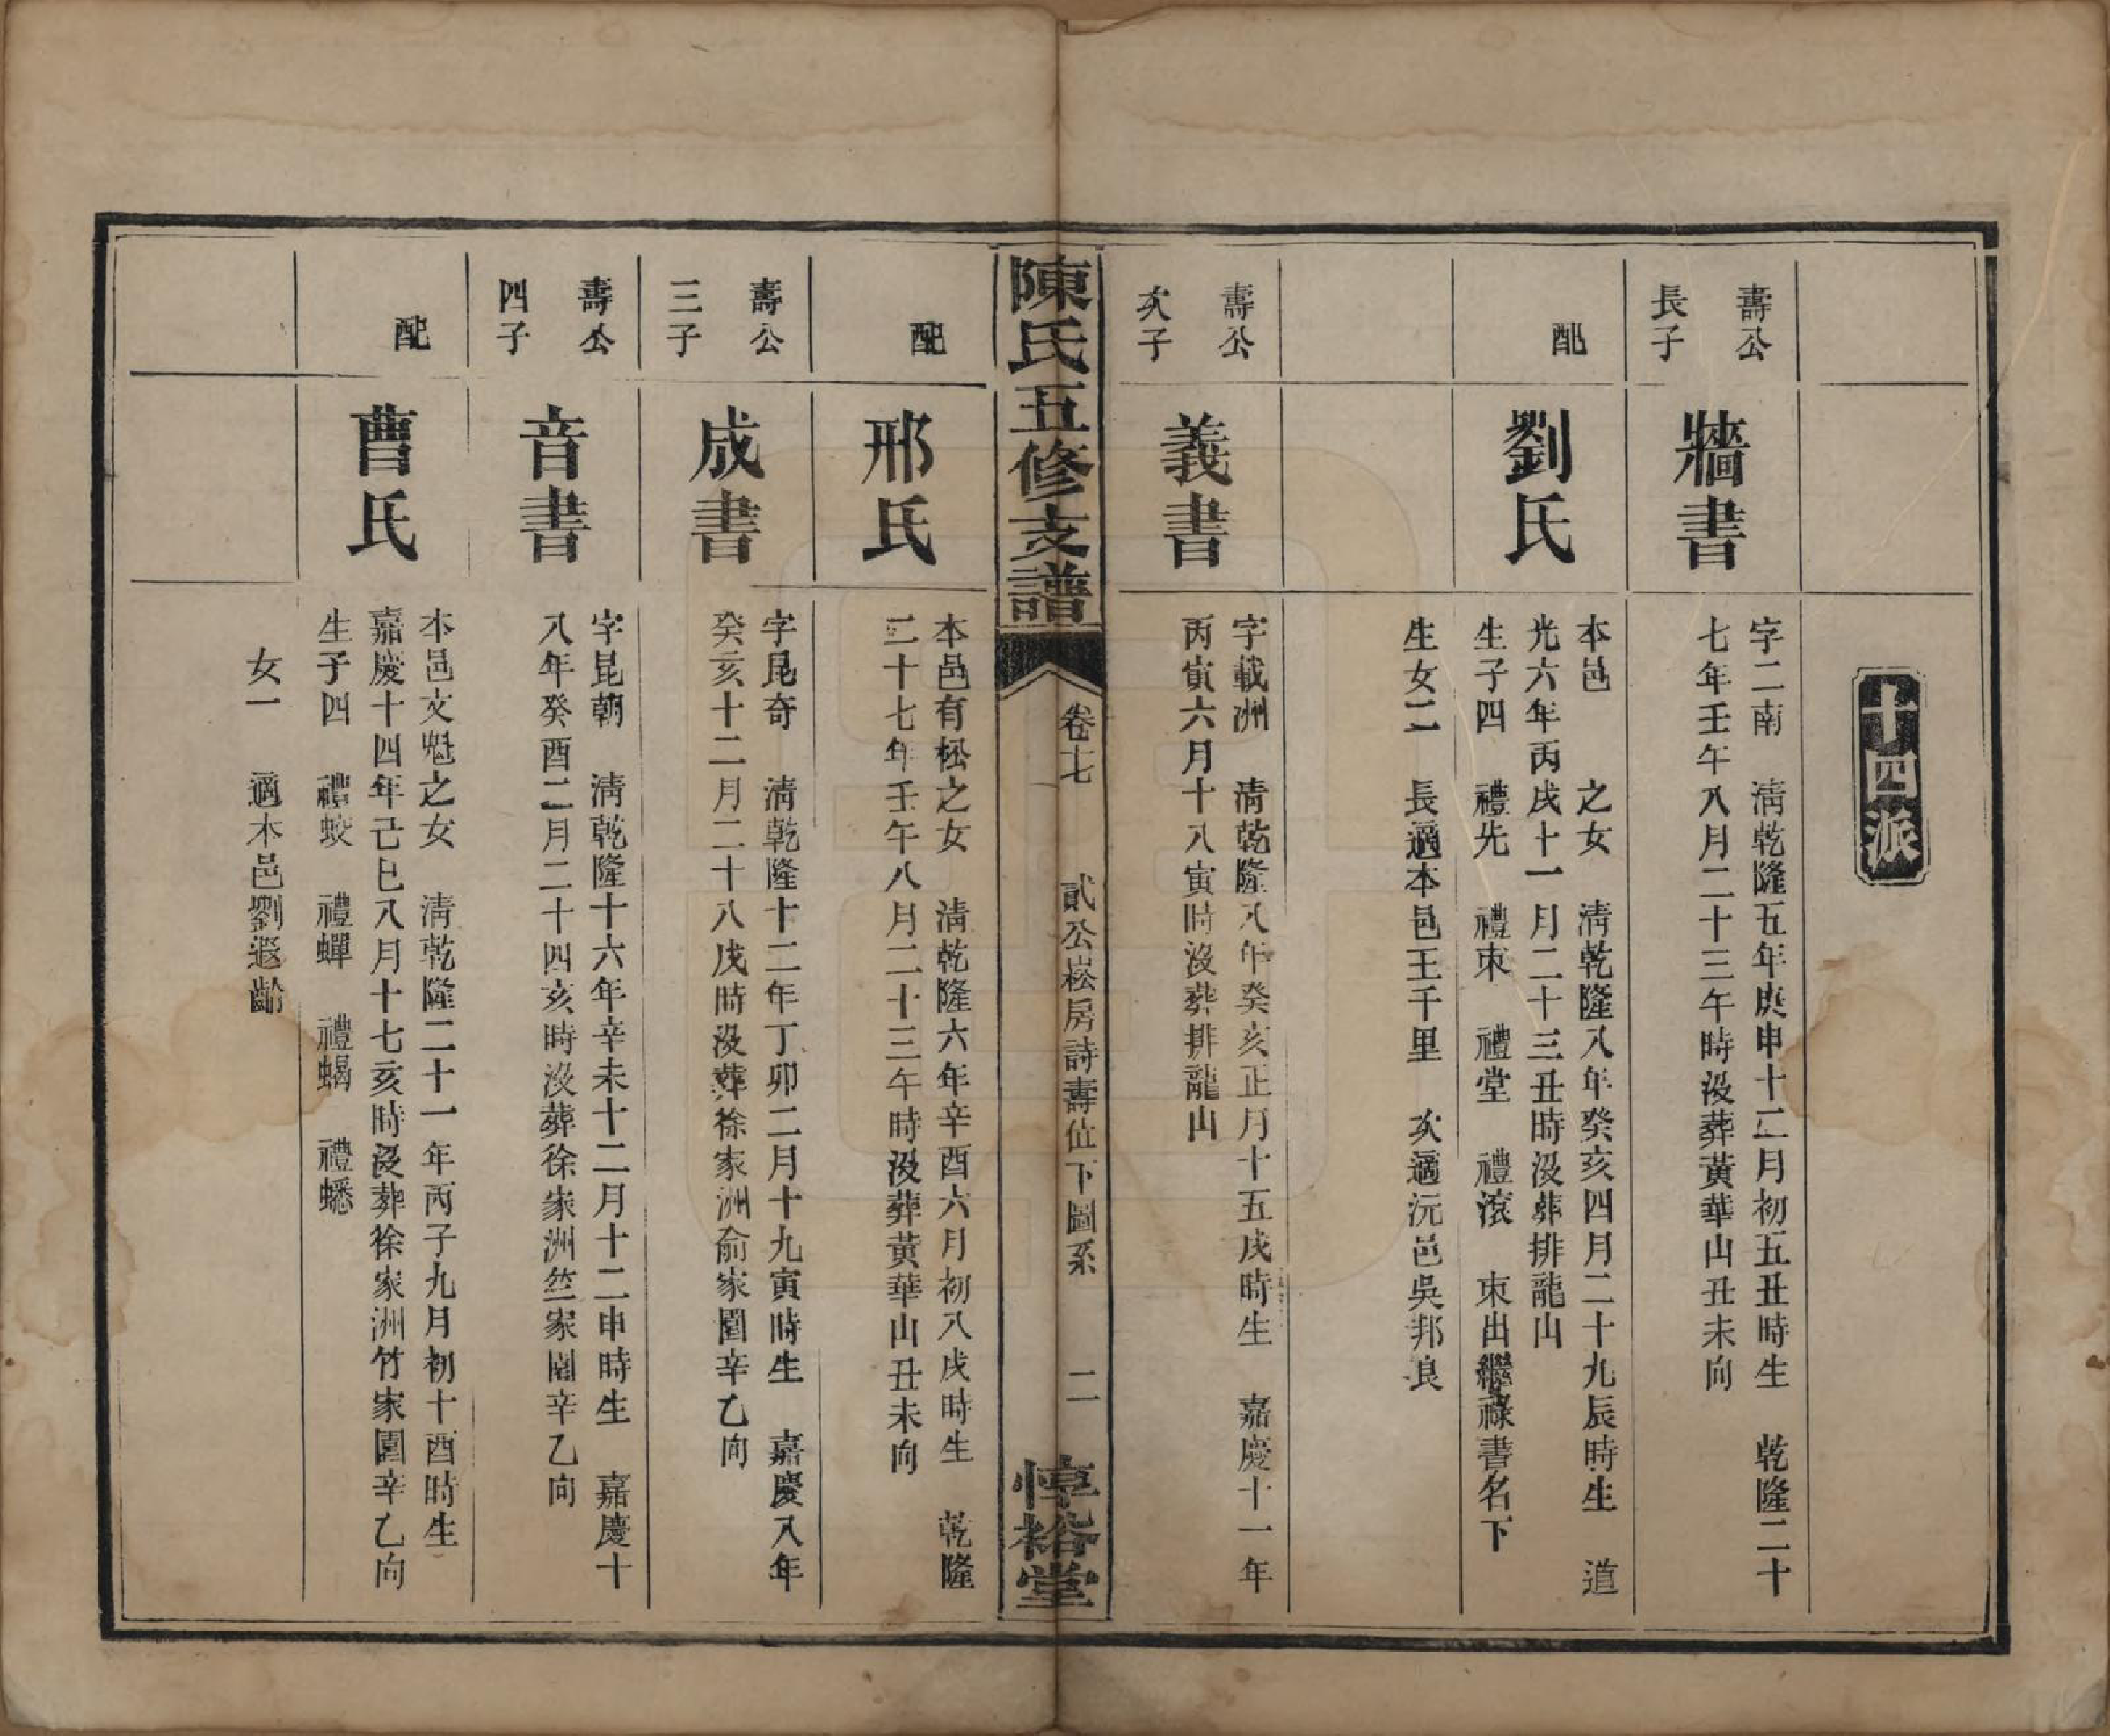 十四派
壽公
長子
牆書
字二南　清乾隆五年庚申十二月初五丑時生　乾隆二十
七年壬午八月二十三午時沒葬黃華山丑未向
配
劉氏
本邑　　之女　清乾隆八年癸亥四月二十九辰時生　道
光六年丙戌十一月二十三丑時沒葬排龍山
生子四　禮先　禮東　禮堂　禮滾　東出繼祿書名下
生女二　長適本邑王千里　次適沅邑吳邦良
壽公
次子
義書
字載洲　清乾隆八年癸亥正月十五戌時生　嘉慶十一年
丙寅六月十八寅時沒葬排龍山
陳氏五修支譜
卷十七
貳公崧房詩壽位下圖系
二
惇裕堂
配
邢氏
本邑有松之女　清乾隆六年辛酉六月初八戌時生　乾隆
二十七年壬午八月二十三午時沒葬黃華山丑未向
壽公
三子
成書
字昆奇　清乾隆十二年丁卯二月十九寅時生　嘉慶八年
癸亥十二月二十八戌時沒葬徐家洲俞家園辛乙向
壽公
四子
音書
字昆朝　清乾隆十六年辛未十二月十二申時生　嘉慶十
八年癸酉二月二十四亥時沒葬徐家洲竺家園辛乙向
配
曹氏
本邑文魁之女　清乾隆二十一年丙子九月初十酉時生
嘉慶十四年己巳八月十七亥時沒葬徐家洲竹家園辛乙向
生子四　禮蛟　禮蟬　禮蝎　禮蟋
女一　適本邑劉遐齡